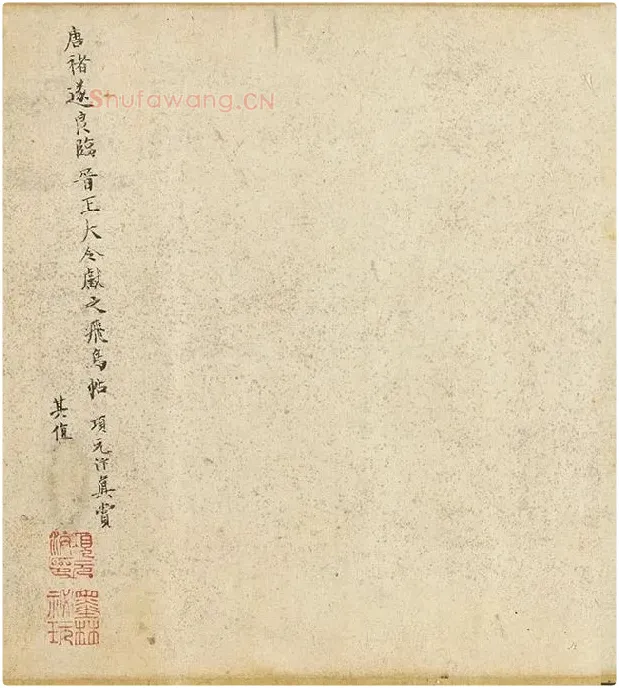 唐褚遂良臨晉王大令獻之飛鳥帖 項元汴真賞
其值
Shufawang.CN
項元汴印
墨林秘玩